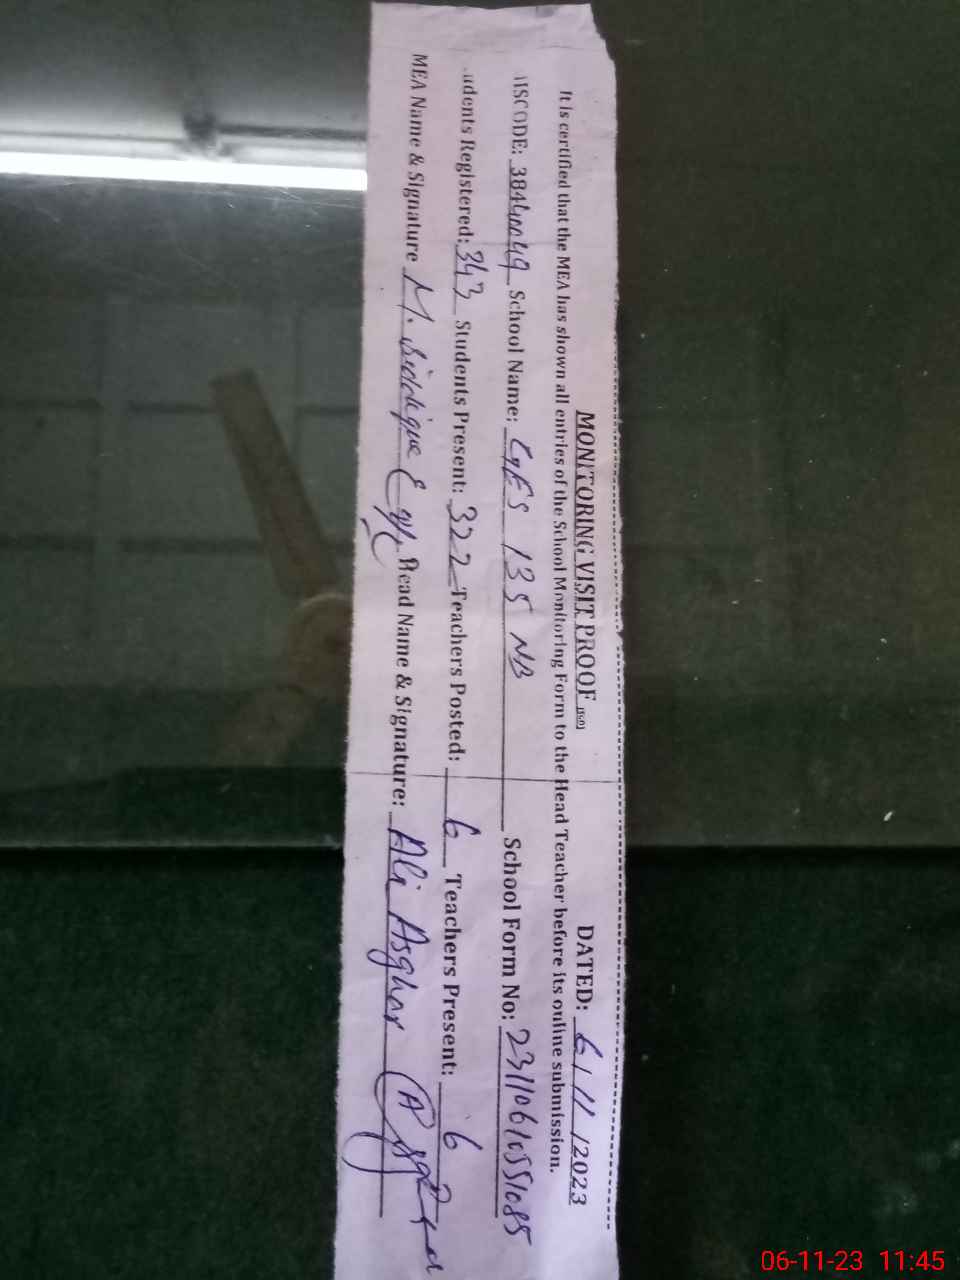 MONITORING VISIT PROOF DATED: 6/11/2023
It is certified that the MEA has shown all entries of the School Monitoring Form to the Head Teacher before its online submission.
ISCODE: 38440049 School Name: GES 135 NB School Form No: 23110610551085
udents Registered: 343 Students Present: 322 Teachers Posted: 6 Teachers Present: 6
MEA Name & Signature M. Siddique Head Name & Signature: Ali Asghar
06-11-23 11:45